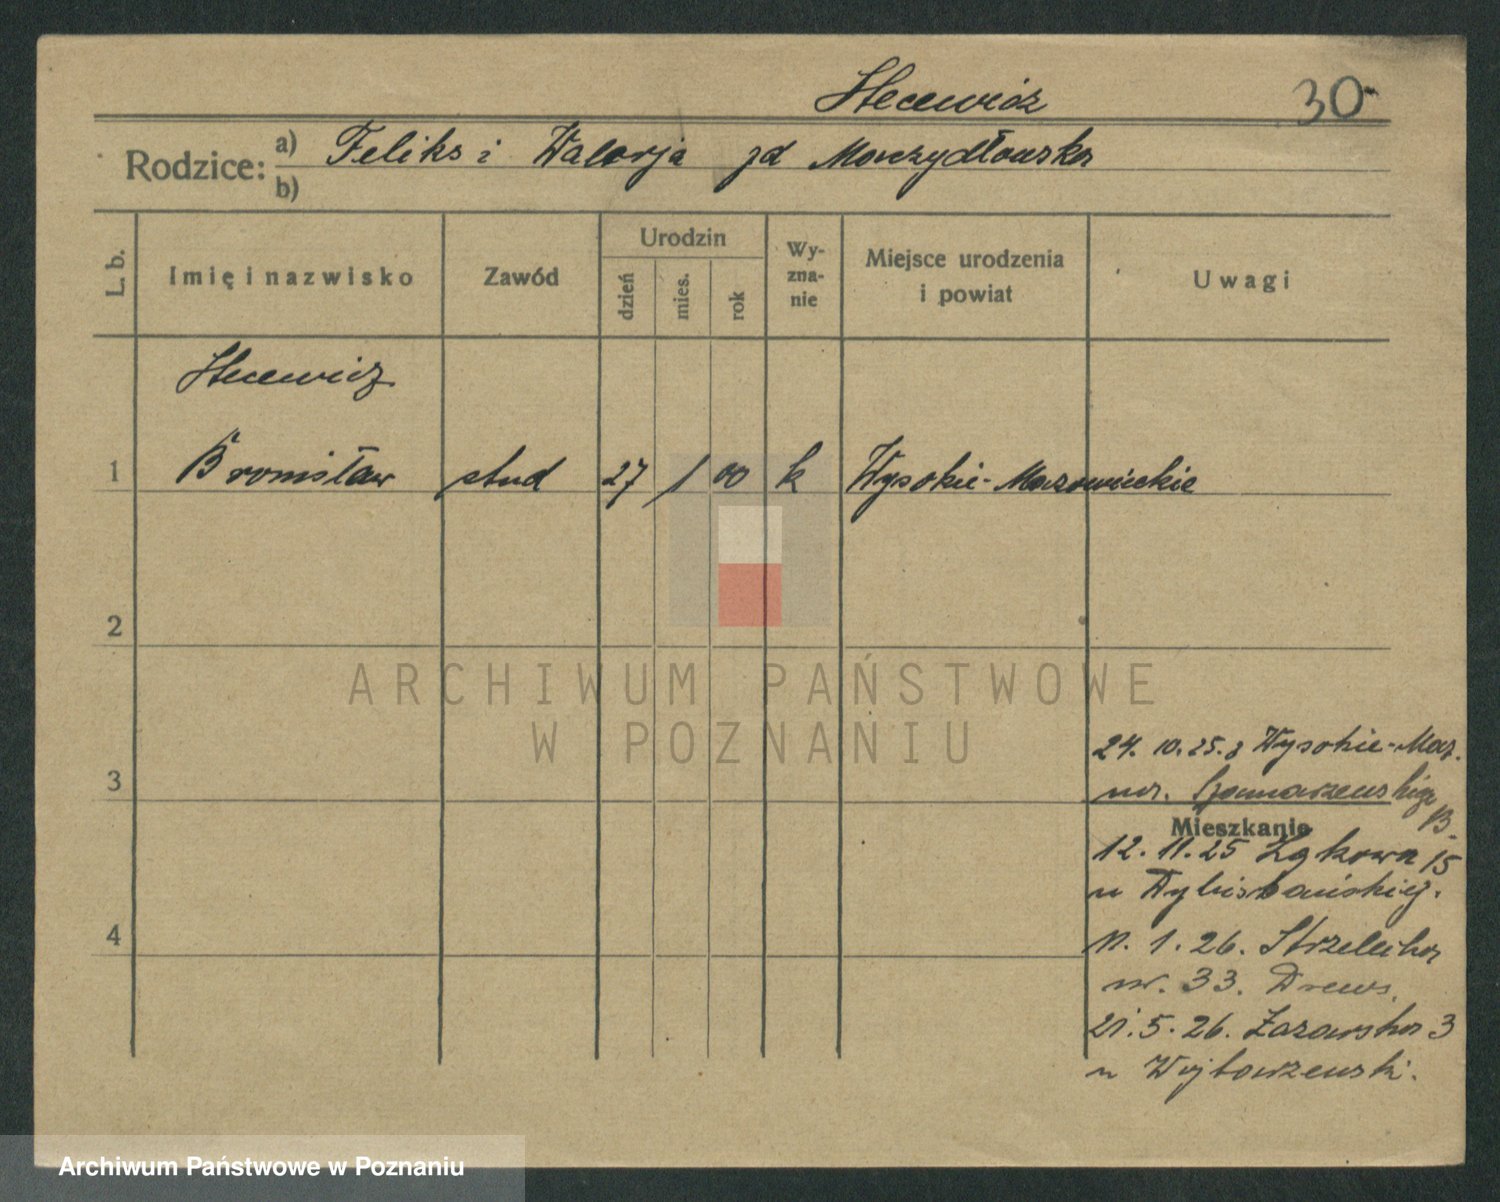 Stecewicz
30
Rodzice: a) Feliks i Walerja zd Moczydłowska
b)
L. b.
Imię i nazwisko
Zawód
Urodzin
dzień
mies.
rok
Wy-
zna-
nie
Miejsce urodzenia
i powiat
Uwagi
Stecewicz
1 Bronisław stud 27 1 00 k Wysokie-Mazowieckie
2
3
4
24. 10. 25. z Wysokie-Maz.
Mieszkanie
12. 11. 25 Łąkowa 15
u
11. 1. 26. Strzelecka
nr. 33. Drews.
21. 5. 26. 3
u
ARCHIWUM PAŃSTWOWE
W POZNANIU
Archiwum Państwowe w Poznaniu